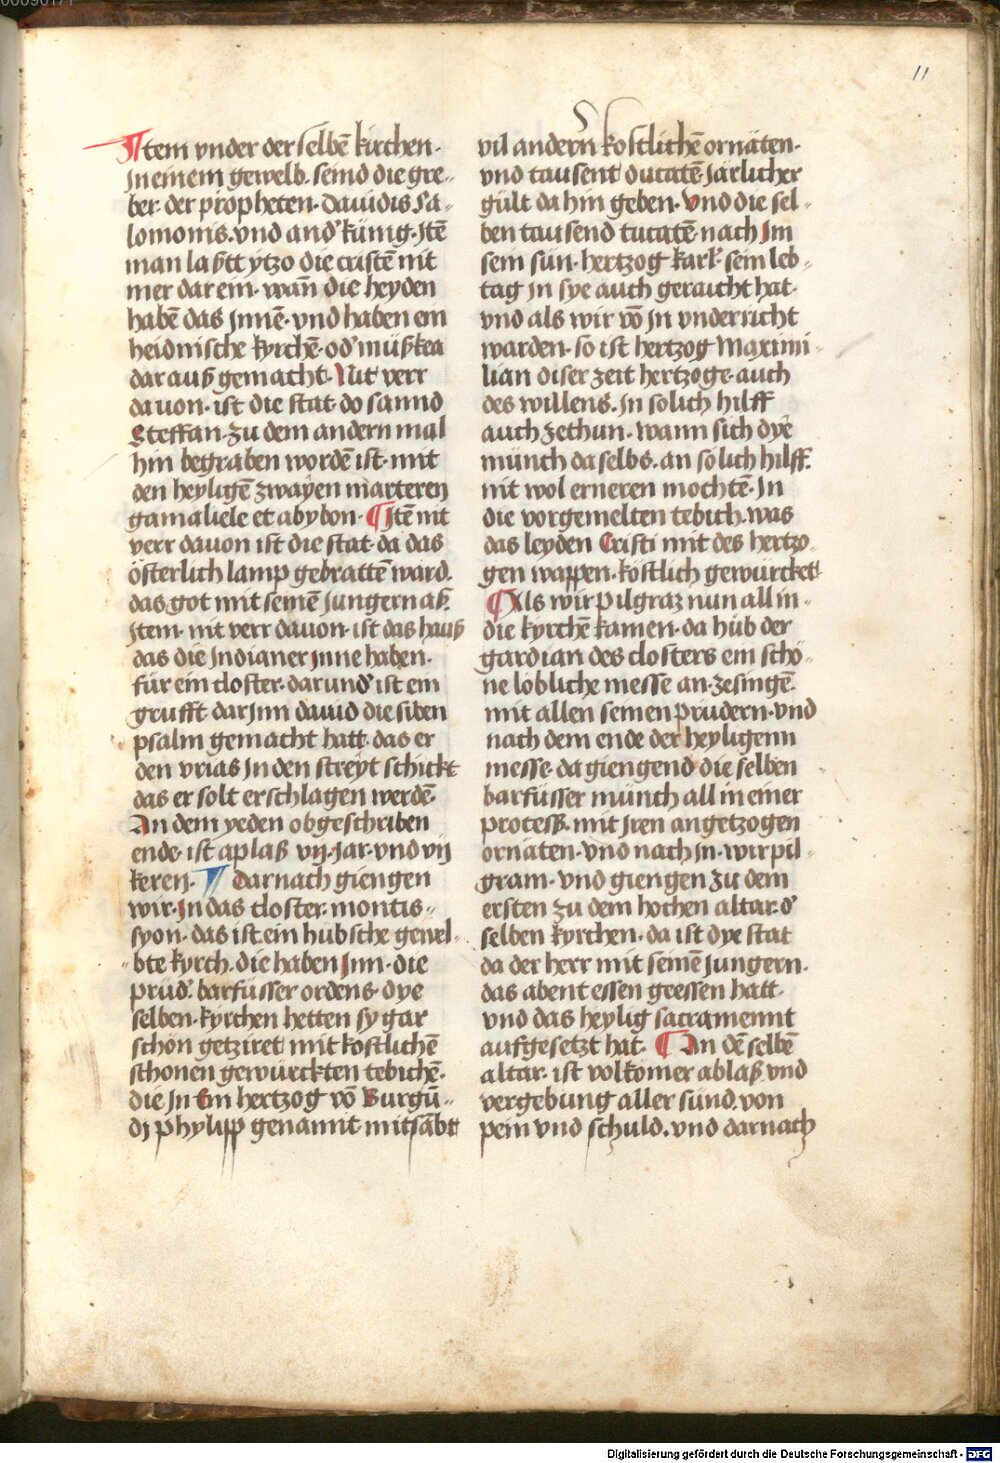 11
Jtem vnder der selbē kirchen·
Jn einem gewelb· seind die gre-
ber· der propheten· dauidis Sa-
lomonis· vnd and' künig· Jtē
man laßtt ytzo die cristē nit
mer dar ein· wan̄ die heyden
habē das Jnnē· vnd haben ein
heidnische kyrchē· od' müßkea
dar auß gemacht· Nit verr
dauon· ist die stat· do sannd
Steffan· zu dem andern mal
hin begraben wordē ist· mit
den heyligē zwayen marteren
gamaliele et abybon· ¶ Jtē nit
verr dauon ist die stat· da das
österlich lamp gebrattē ward·
das got mit seinē Jungern aß·
Jtem· nit verr dauon· ist das hauß
das die Jndianer Jnne haben·
für ein closter· dar und' ist ein
grufft· dar Jnn dauid die siben
psalm gemacht hatt· das er
den vrias Jn den streyt schickt
das er solt erschlagen werdē·
An dem yeden obgeschriben
ende· ist aplaß vij· Jar· vnd vij
keren· ¶ darnach giengen
wir· Jn das closter· montis-
syon· das ist ein hübsche gewel-
-bte kyrch· die haben Jnn· die
prüd'· barfüsser ordens· dye
selben· kyrchen hetten sy gar
schön getziret mit kostlichē
schonen gewürckten tebichē·
die Jn Ein hertzog vō Burgū-
dj phylipp genannt mitsābt
vil andern̄ kostlichē ornäten·
vnd tausent ducatē Järlicher
gült da hin geben· Vnd die sel-
ben tausend tucatē· nach Jm
sein sün· hertzog karl· sein leb-
tag Jn sye auch geraicht hat·
vnd als wir vō Jn vnderricht
warden· so ist hertzog Maximi-
lian diser zeit hertzoge· auch
des willens· Jn solich hilff
auch zethun· wann sich dye
münch da selbs· an solich hilff·
nit wol erneren mochtē· Jn
die vorgemelten tebich· was
das leyden Cristi mit des hertzo-
gen wappen· köstlich gewürcket
¶ Als wir pilgraz nun all in-
die kyrchē kamen· da hüb der
gardian des closters ein schö-
ne lobliche messe an· zesingē·
mit allen seinen prüdern· vnd
nach dem ende der heyligenn
messe· da giengend die selben
barfüsser münch all in einer
proteß· mit Jren angetzogen
ornaten· vnd nach Jn· wir pil-
gram· vnd giengen zu dem
ersten zu dem hochen altar· d'
selben kyrchen· da ist dye stat
da der herr mit seinē Jungern·
das abent essen geessen hatt·
vnd das heylig sacramennt
aufgesetzt hat· ¶ An dē selbē
altar· ist volkomer ablaß vnd
vergebung aller sünd· von
pein vnd schuld· vnd darnach
Digitalisierung gefördert durch die Deutsche Forschungsgemeinschaft - DFG